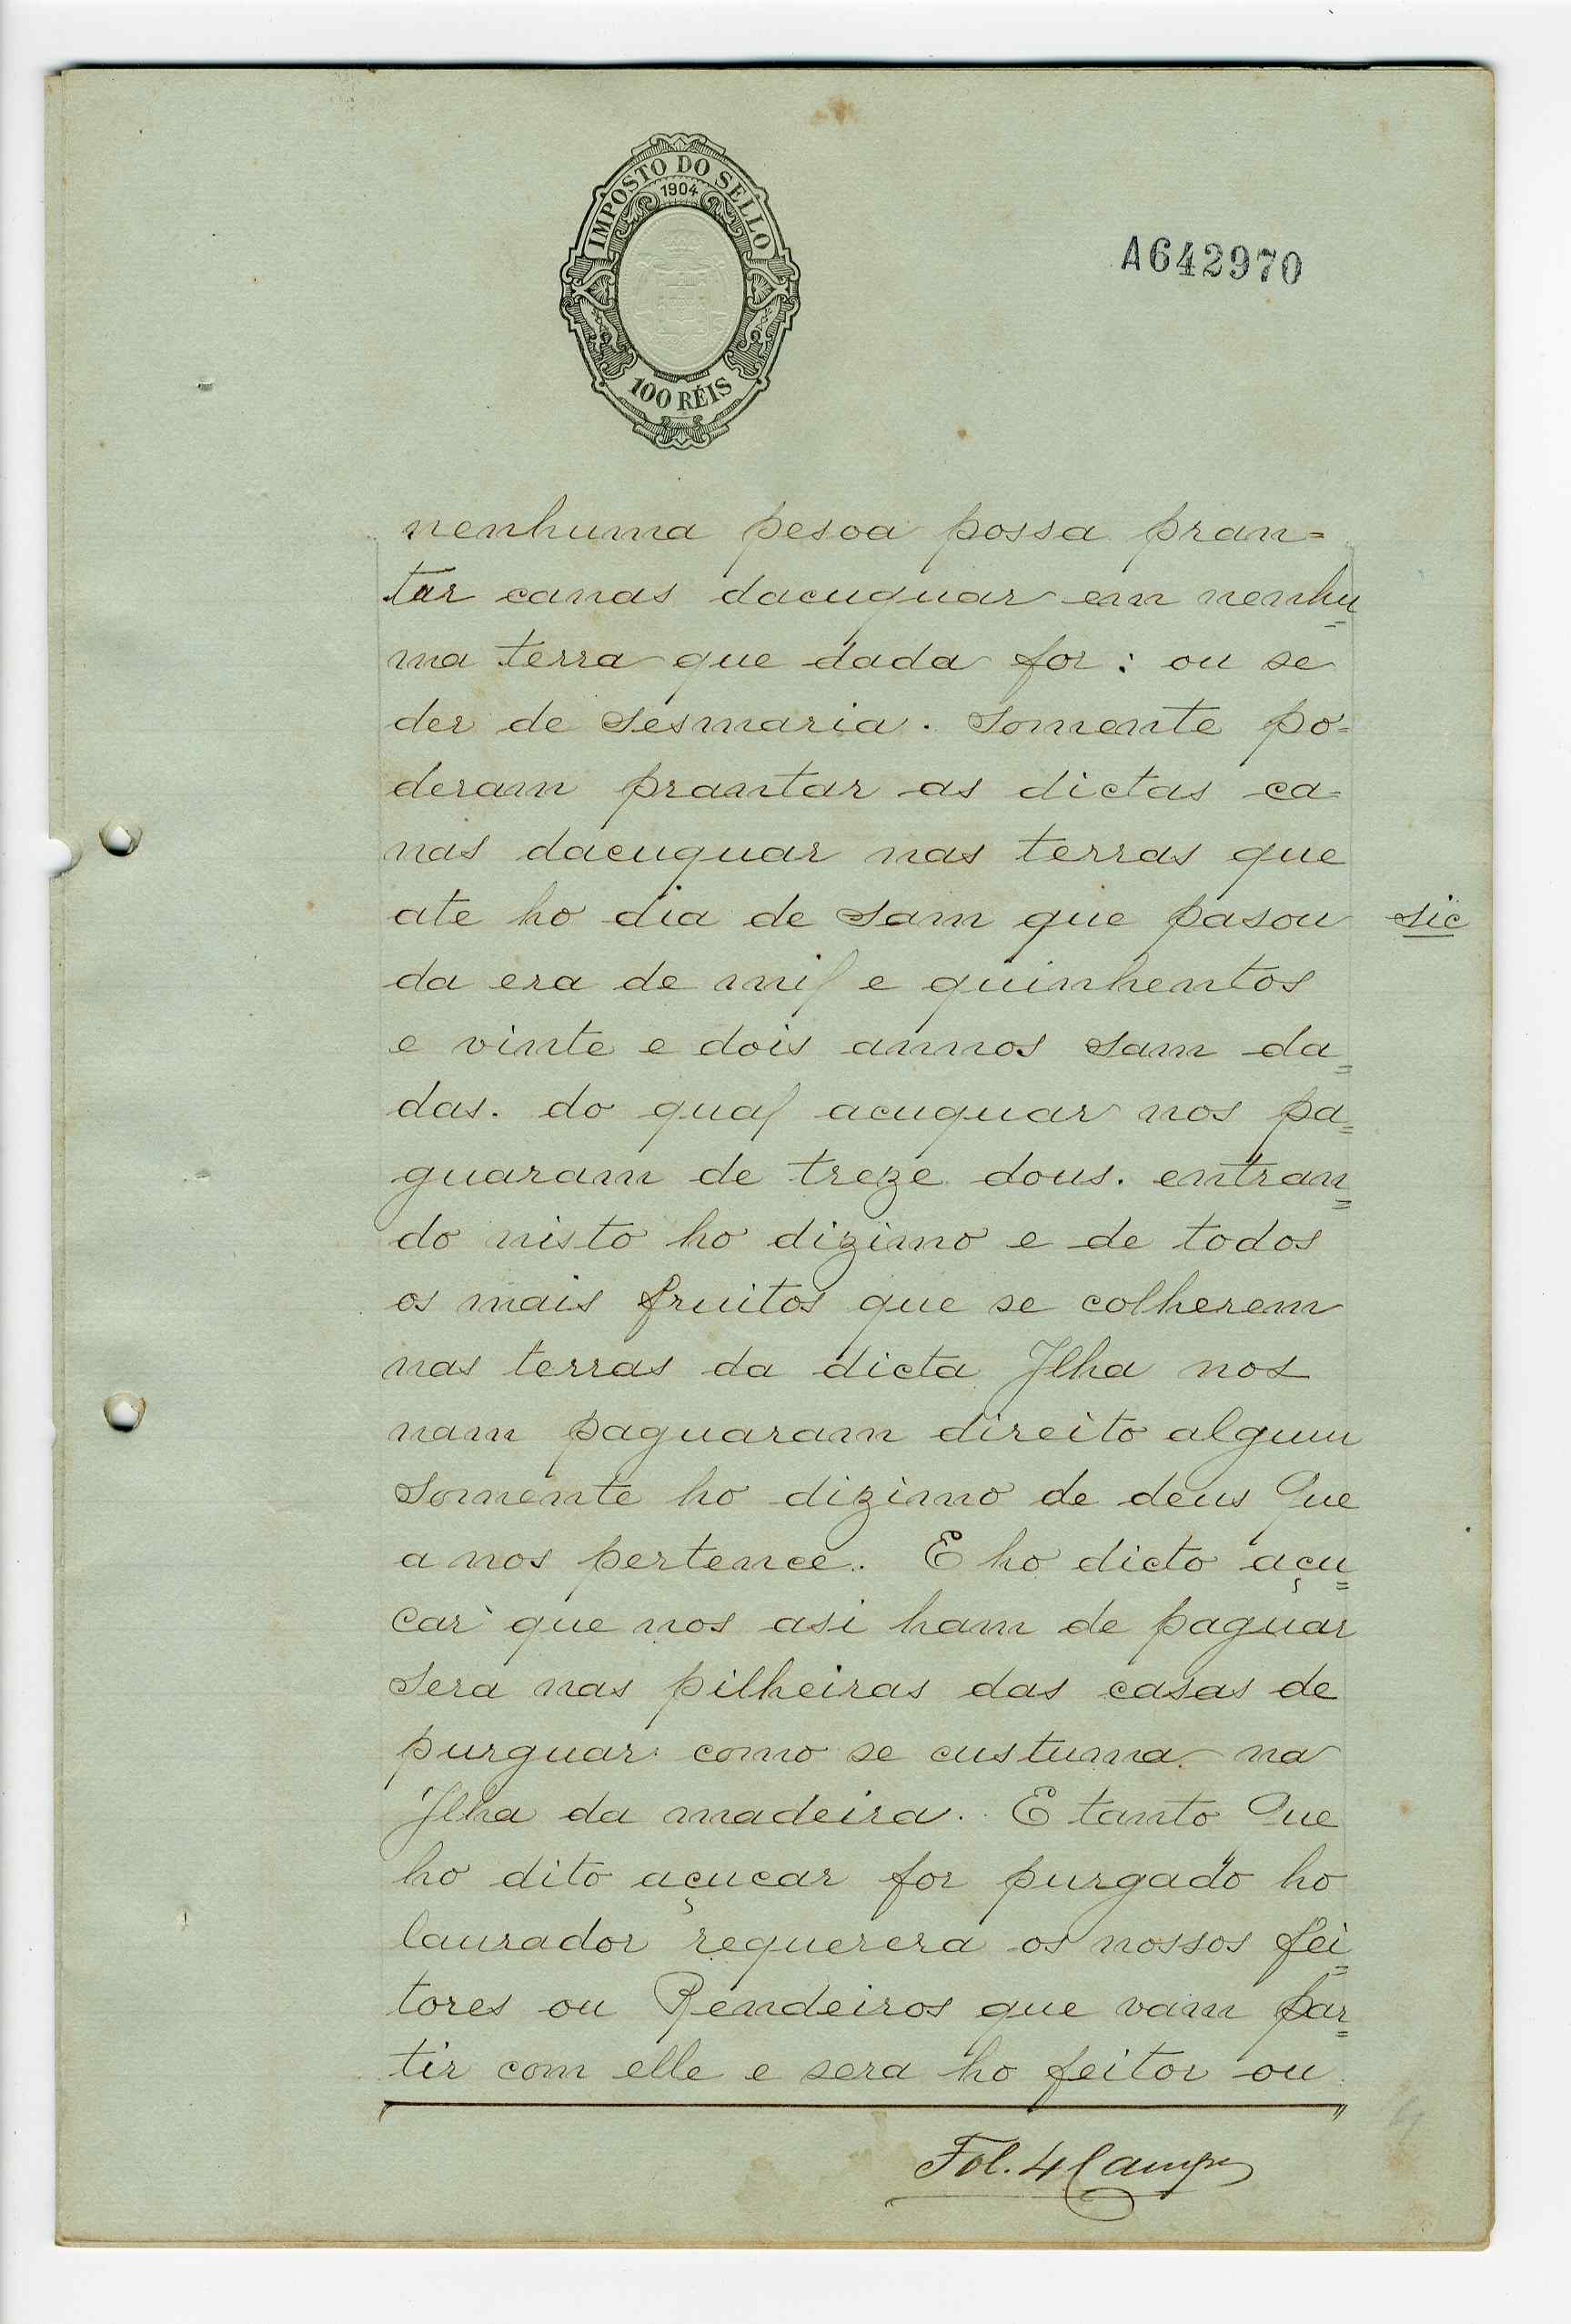 IMPOSTO DO SELLO
1904
100 RÉIS
A642970
nenhuma pesoa possa pran=
tar canas dacuquar em nenhu=
ma terra que dada for: ou se
der de Sesmaria. Somente po=
deram prantar as dictas ca=
nas dacuquar nas terras que
ate ho dia de Sam que pasou sic
da era de mil e quinhentos
e vinte e dois annos Sam da=
das. do qual acuquar nos pa=
guaram de treze dous. entran=
do nisto ho dizimo e de todos
os mais fruitos que se colherem
nas terras da dicta Ilha nos
nam paguaram direito algum
Somente ho dizimo de deus Que
a nos pertence. E ho dicto açu=
car que nos asi ham de paguar
Sera nas pilheiras das casas de
purguar como se custuma na
Ilha da madeira. E tanto Que
ho dito açucar for purgado ho
laurador requerera os nossos fei=
tores ou Rendeiros que vam par=
tir com elle e sera ho feitor ou
Fol. 4